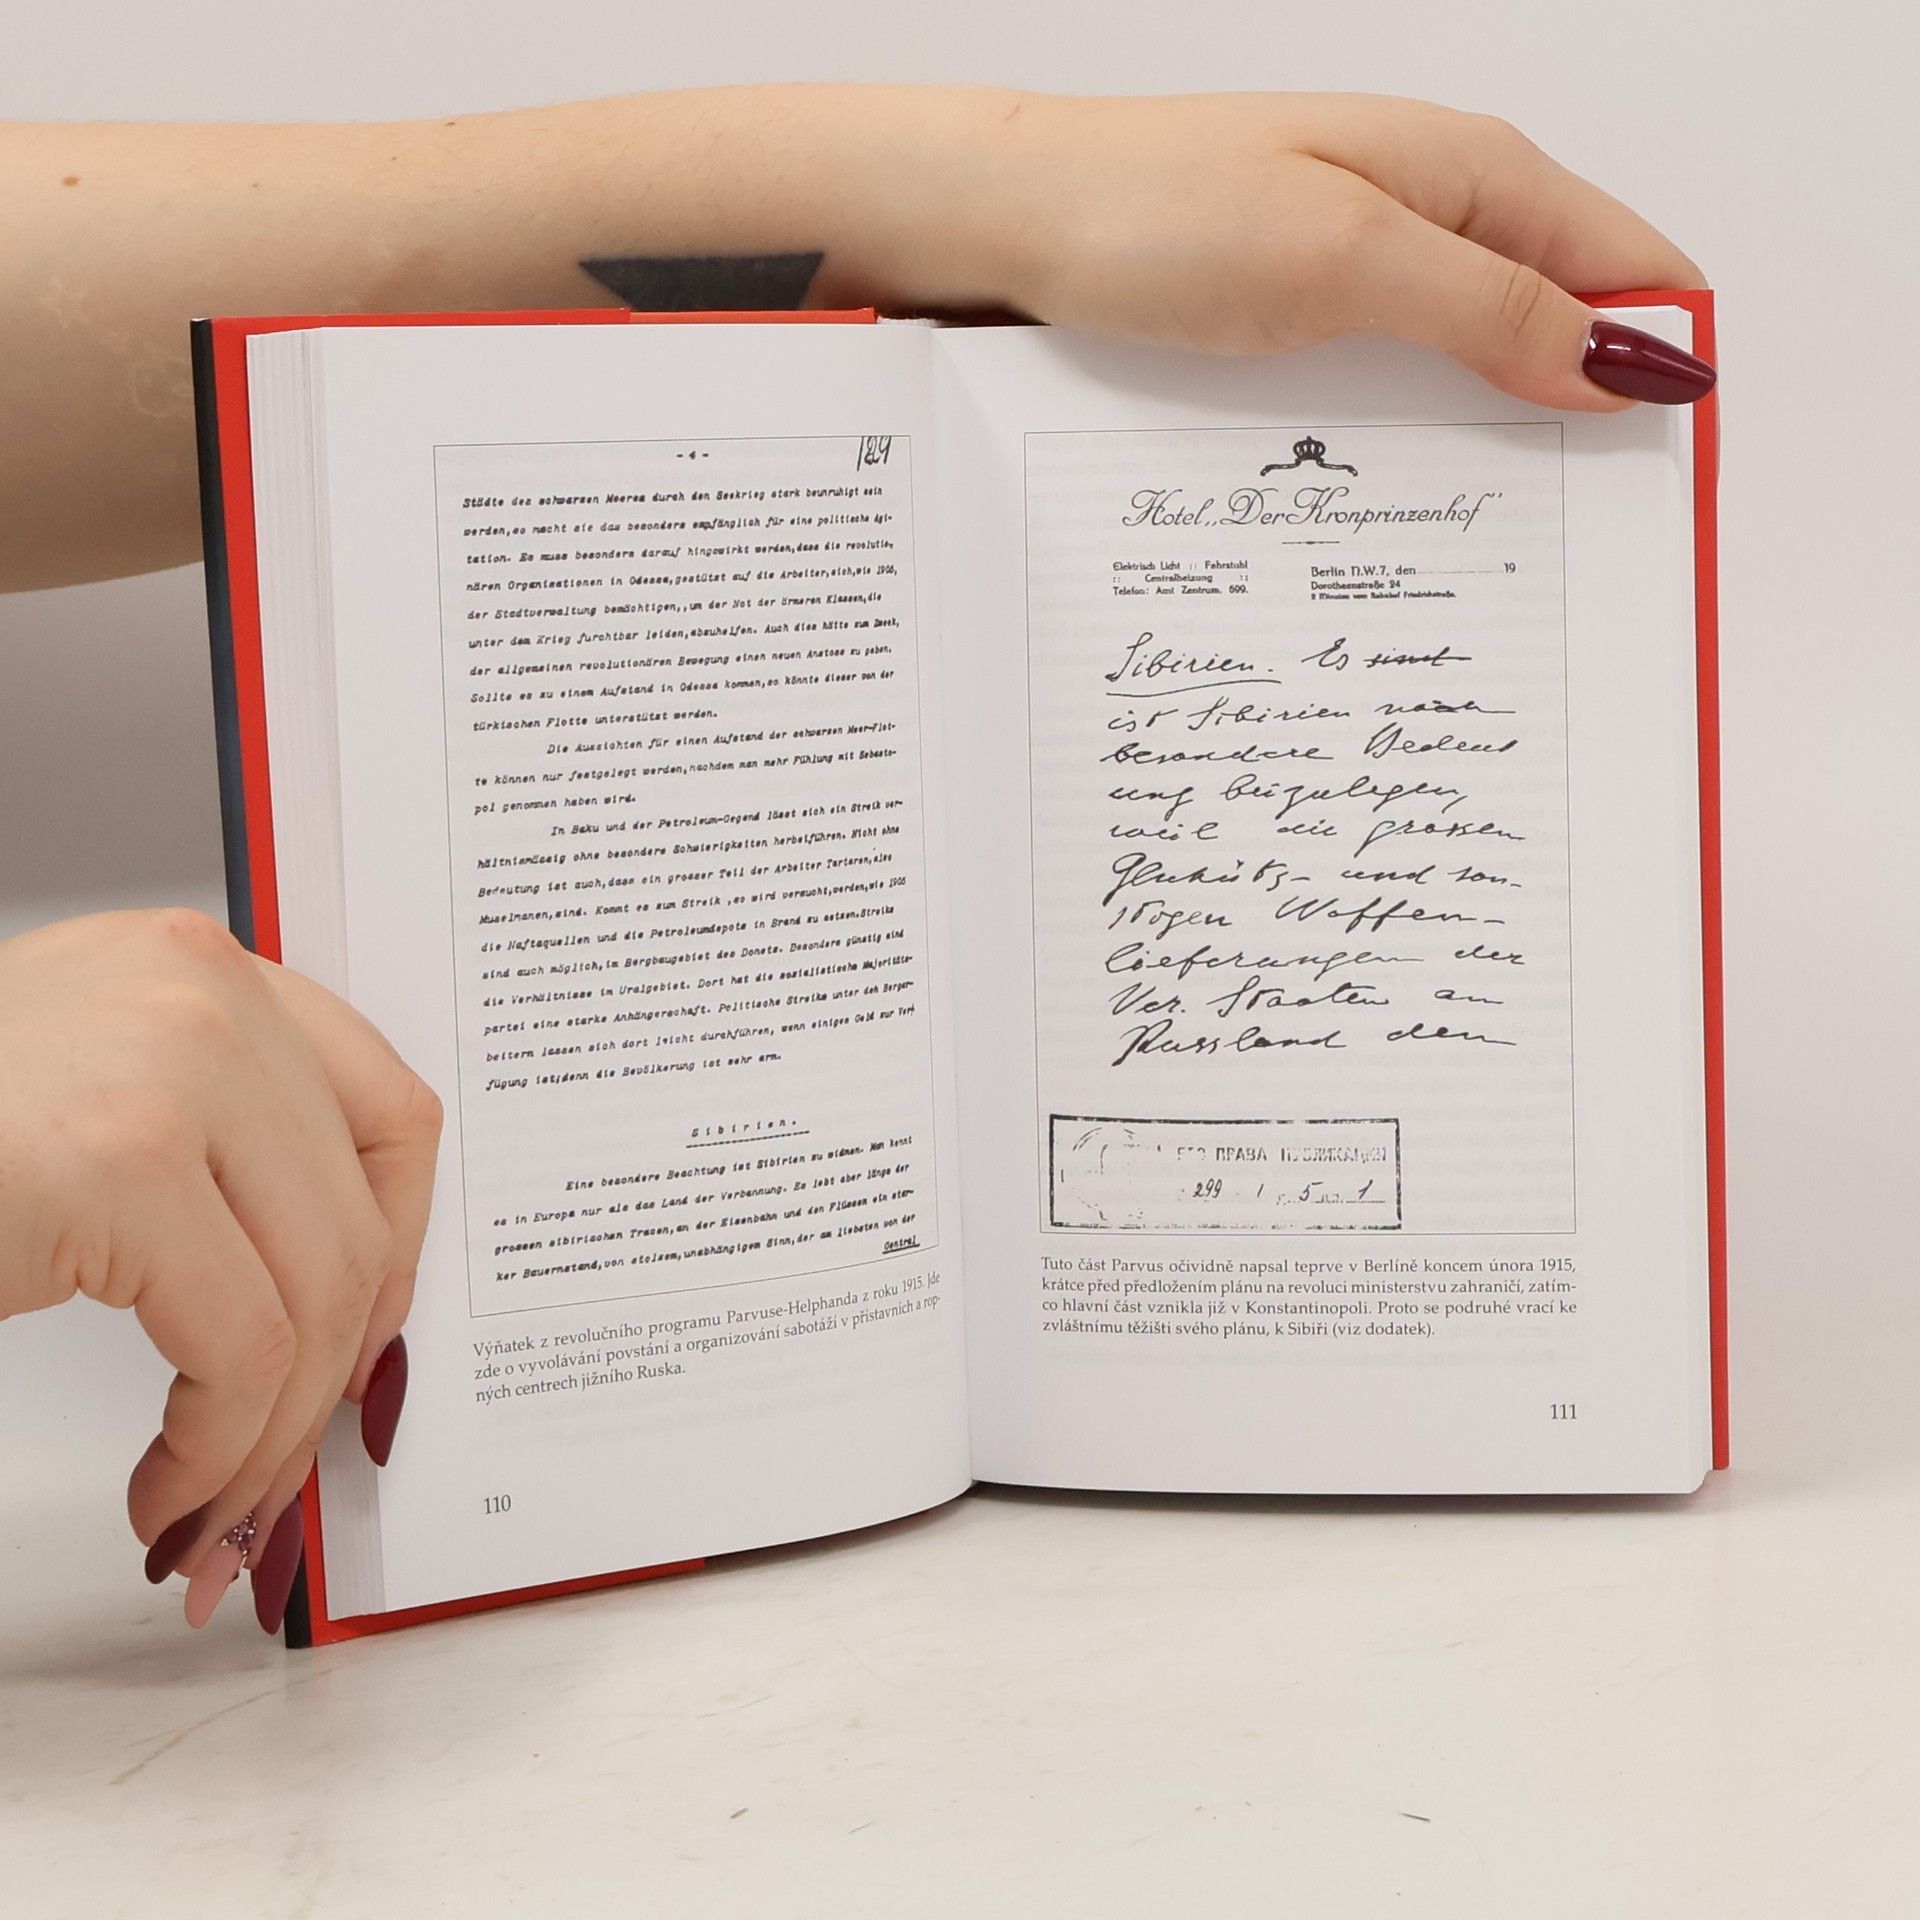 - 4 -
Städte des schwarzen Meeres durch den Seekrieg stark beunruhigt sein
werden,so macht sie das besonders empfänglich für eine politische Agi-
tation. Es muss besonders darauf hingewirkt werden,dass die revolutio-
nären Organisationen in Odessa,gestützt auf die Arbeiter,sich,wie 1905,
der Stadtverwaltung bemächtigen,,um der Not der ärmeren Klassen,die
unter dem Krieg furchtbar leiden,abzuhelfen. Auch dies hätte zum Zweck,
der allgemeinen revolutionären Bewegung einen neuen Anstoss zu geben.
Sollte es zu einem Aufstand in Odessa kommen,so könnte dieser von der
türkischen Flotte unterstützt werden.
Die Aussichten für einen Aufstand der schwarzen Meer-Flot-
te können nur festgelegt werden,nachdem man mehr Fühlung mit Sebasto-
pol genommen haben wird.
In Baku und der Petroleum-Gegend lässt sich ein Streik ver-
hältnismässig ohne besondere Schwierigkeiten herbeiführen. Nicht ohne
Bedeutung ist auch,dass ein grosser Teil der Arbeiter Tartaren,also
Muselmanen,sind. Kommt es zum Streik ,so wird versucht,werden,wie 1905
die Naftaquellen und die Petroleumdepots in Brand zu setzen.Streiks
sind auch möglich,im Bergbaugebiet des Donets. Besonders günstig sind
die Verhältnisse im Uralgebiet. Dort hat die sozialistische Majoritäts-
partei eine starke Anhängerschaft. Politische Streiks unter den Bergar-
beitern lassen sich dort leicht durchführen, wenn einiges Geld zur Ver-
fügung ist;denn die Bevölkerung ist sehr arm.
Sibirien.
Eine besondere Beachtung ist Sibirien zu widmen. Man kennt
es in Europa nur als das Land der Verbannung. Es lebt aber längs der
grossen sibirischen Tracen,an der Eisenbahn und den Flüssen ein star-
ker Bauernstand,von stolzem,unabhängigem Sinn,der am liebsten von der
Central
Výňatek z revolučního programu Parvuse-Helphanda z roku 1915. Jde
zde o vyvolávání povstání a organizování sabotáží v přístavních a rop-
ných centrech jižního Ruska.
110
Hotel „Der Kronprinzenhof"
Elektrisch Licht :: Fahrstuhl
:: Centralheizung ::
Telefon: Amt Zentrum. 699.
Berlin N.W.7, den 19
Dorotheenstraße 24
2 Minuten vom Bahnhof Friedrichstraße.
Sibirien. Es sind
ist Sibirien noch
besondere Bedeut
ung beizulegen,
weil die grossen
und son-
stigen Waffen-
lieferungen der
Ver. Staaten an
Russland den
ПРАВА ПУБЛИКАЦИИ
299 1 5 1
Tuto část Parvus očividně napsal teprve v Berlíně koncem února 1915,
krátce před předložením plánu na revoluci ministerstvu zahraničí, zatím-
co hlavní část vznikla již v Konstantinopoli. Proto se podruhé vrací ke
zvláštnímu těžišti svého plánu, k Sibiři (viz dodatek).
111